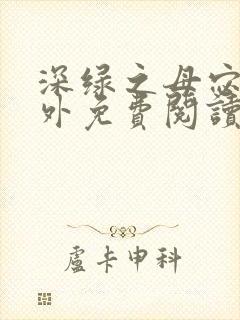 深绿之母
外免費閱讀
盧卡申科